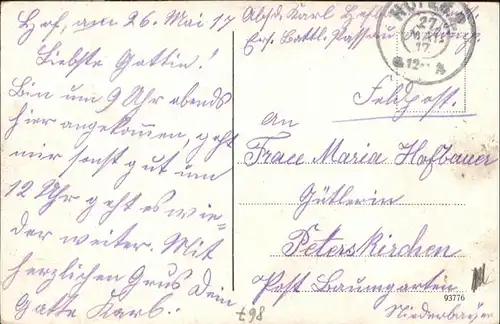 Hof, am 26. Mai 17
Liebste Gattin!
Bin um 9 Uhr abends
hier angekommen, geht
mir sonst gut um
12 Uhr geht es wie-
der weiter. Mit
herzlichen Grus Dein
Gatte Karl.
Absd. Karl
Ers. Battl. Passau
HOF
27
MAI
17
12-
Feldpost.
An
Frau Maria Hofbauer
Gütlerin
Peterskirchen
Post Baumgarten
93776
Niederbayern
798